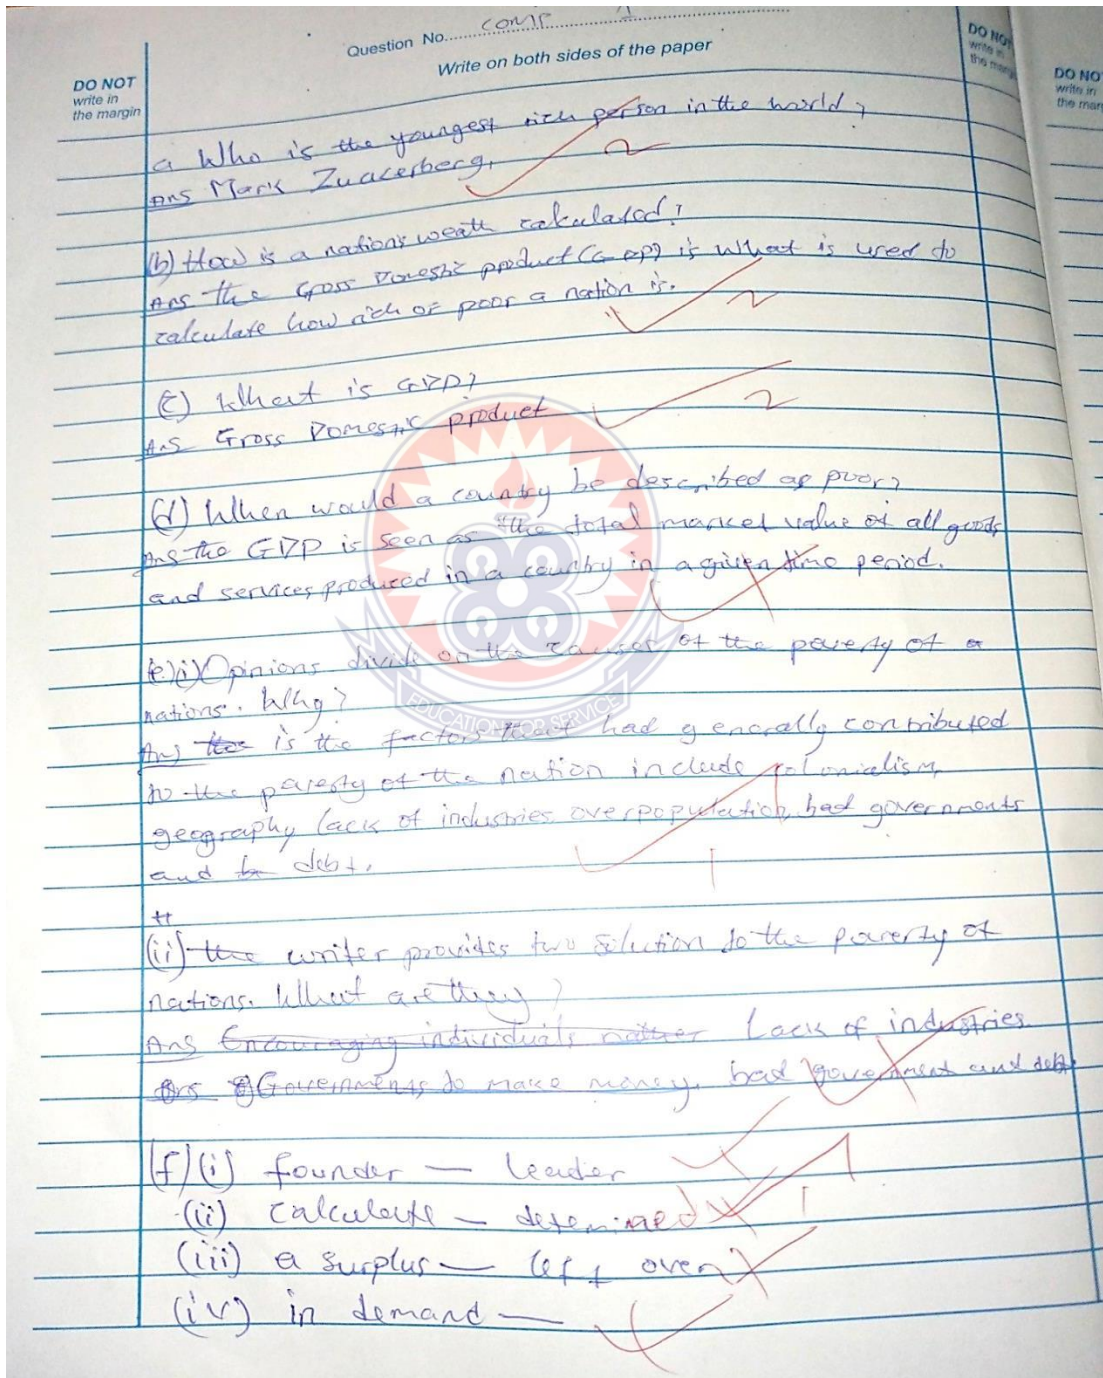 Question No. Comp 1
Write on both sides of the paper
DO NOT
write in
the margin
DO NOT
write in
the margin
DO NO
write in
the mar
a Who is the youngest rich person in the world?
Ans Mark Zuckerberg.
2
(b) How is a nation's weath calculated?
Ans the Gross Domestic product (G DP) is what is used to
calculate how rich or poor a nation is.
2
(c) What is GDP?
Ans Gross Domestic product
2
(d) When would a country be described as poor?
Ans the GDP is seen as the total market value of all goods
and services produced in a country in a given time period.
(e)(i) Opinions divide on the causes of the poverty of a
nations. Why?
Ans the is the factors that had generally contributed
to the poverty of the nation include colonialism,
geography lack of industries overpopulation, bad governments
and debt.
1
(ii) the writer provides two solution to the poverty of
nations. What are they?
Ans Encouraging individuals rather Lack of industries
Ans Governments to make money. bad government and debt
(f)(i) founder — leader
(ii) calculate — determined
1
(iii) a surplus — left over
(iv) in demand —
EDUCATION FOR SERVICE